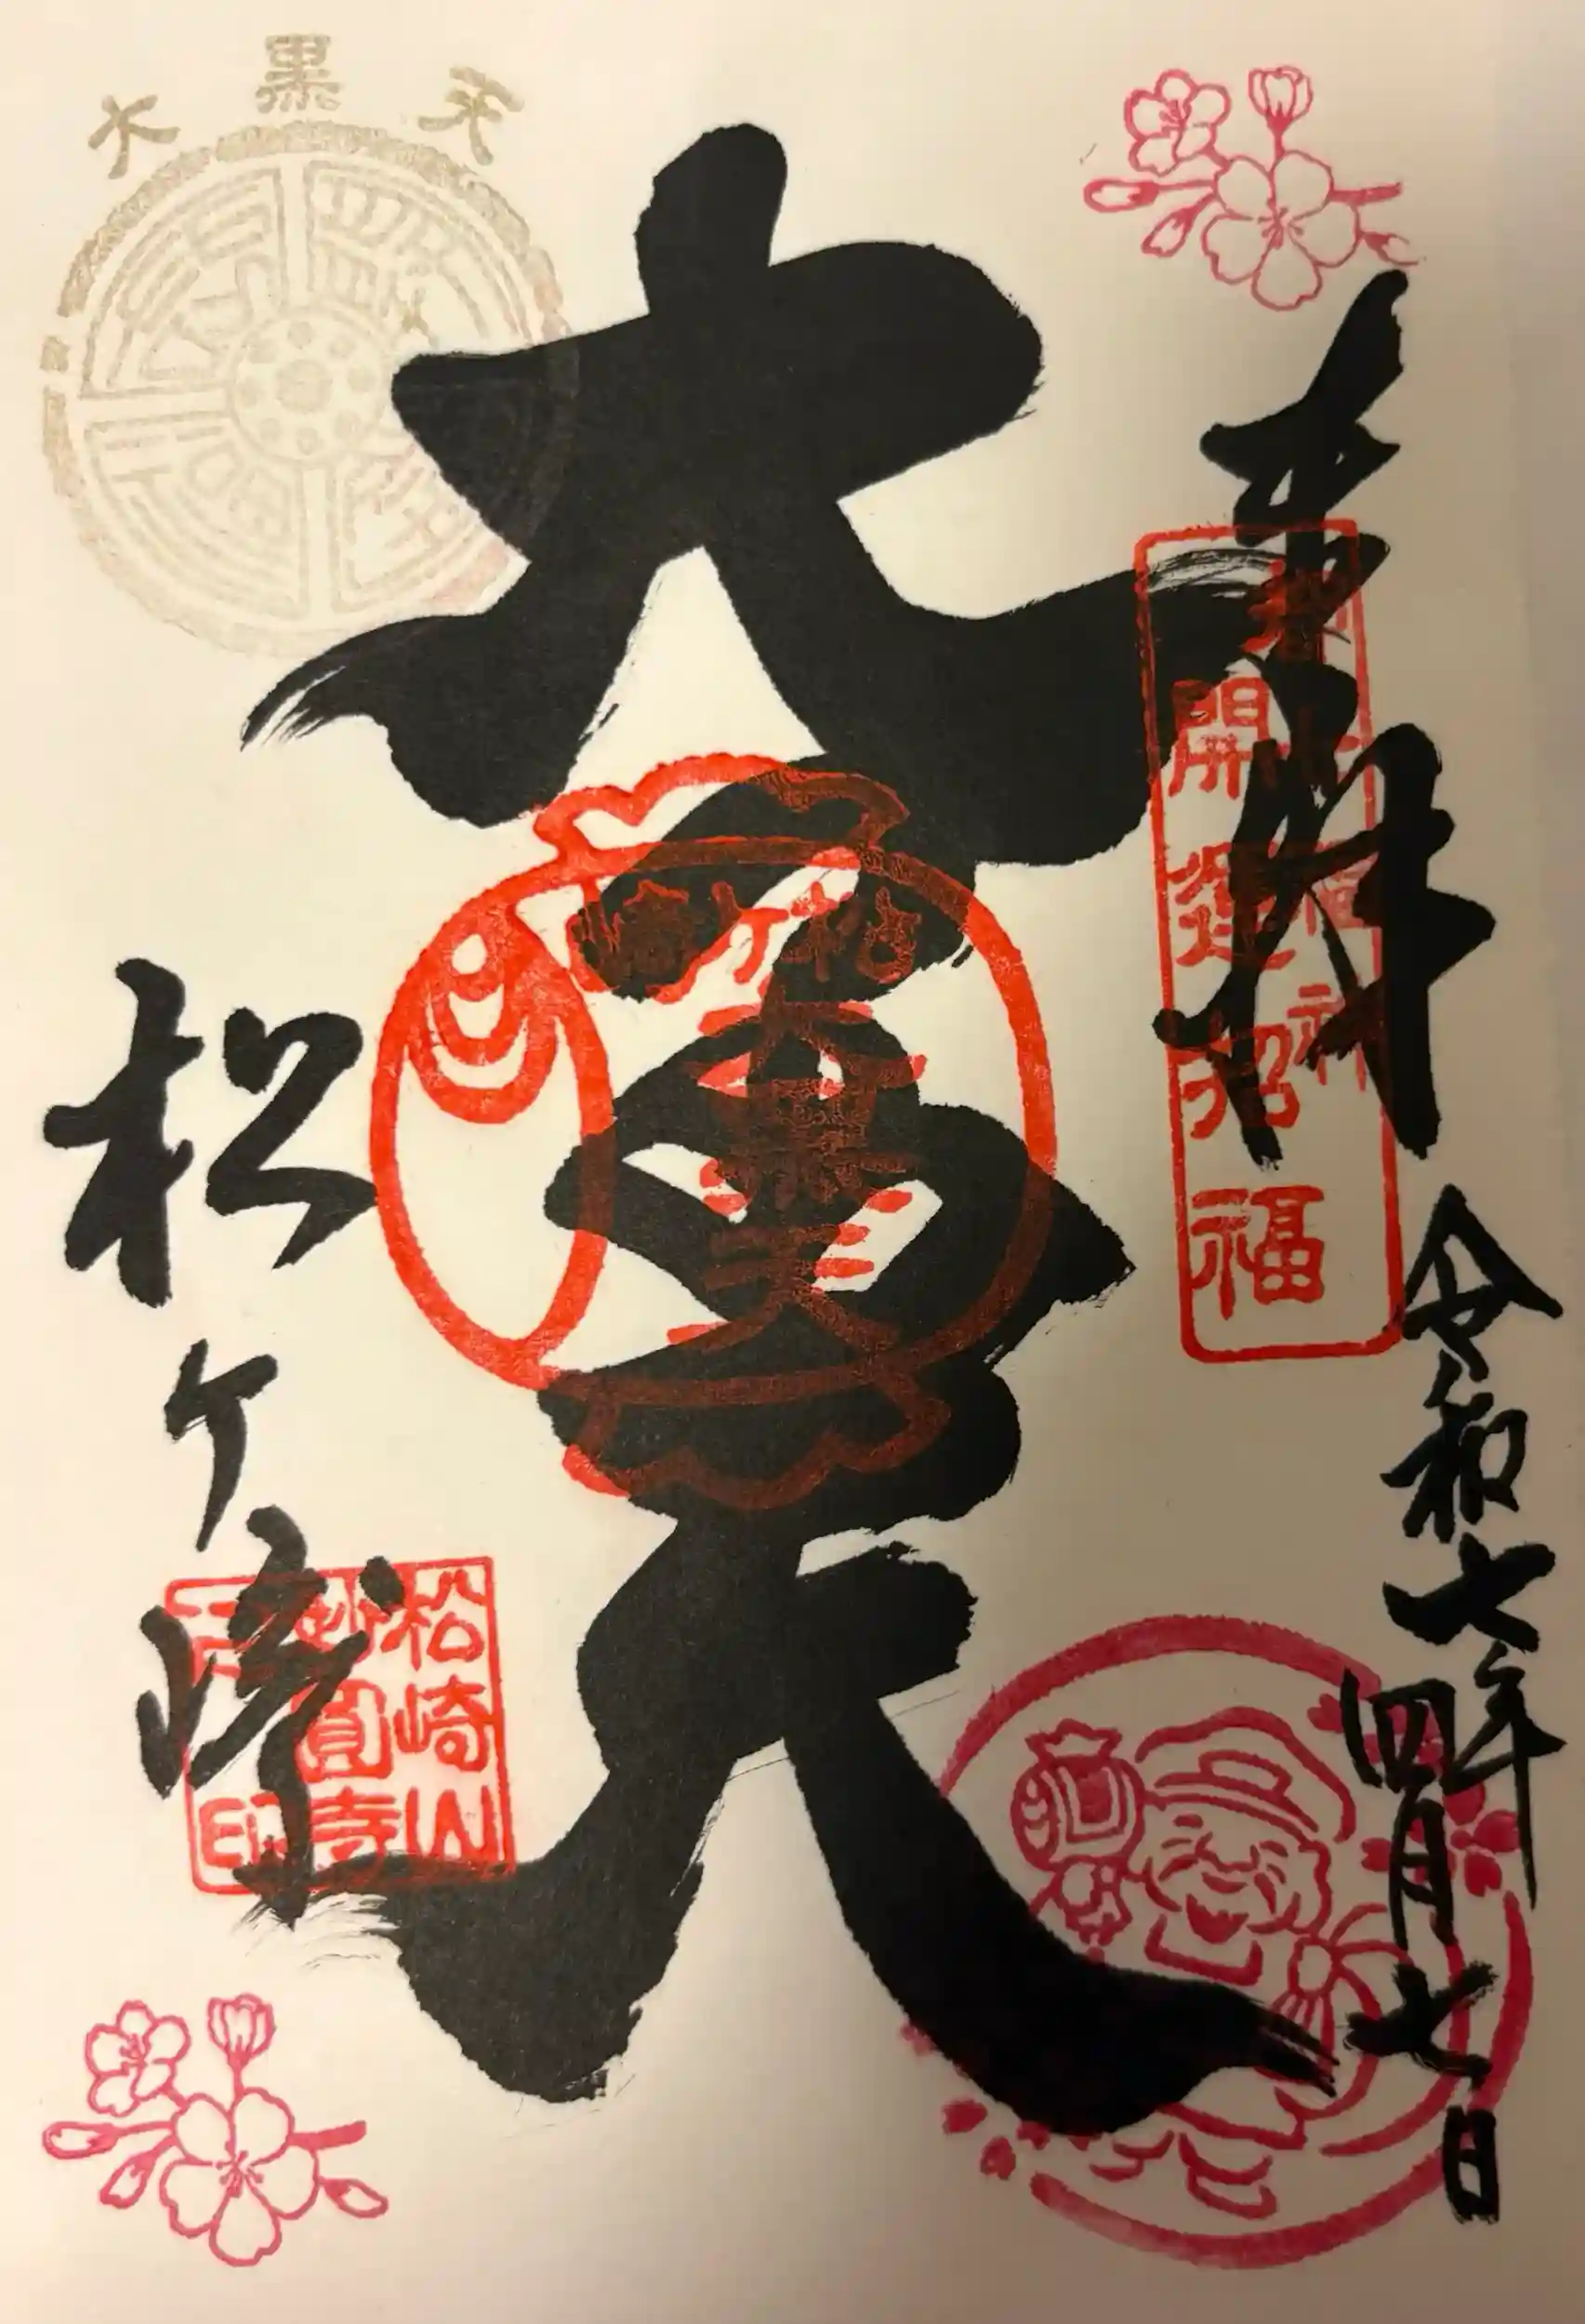 奉拝
令和七年四月七日
大黒天
松ヶ崎
大黒天
開運招福
松ヶ崎
大黒天
松崎山
妙圓寺
印